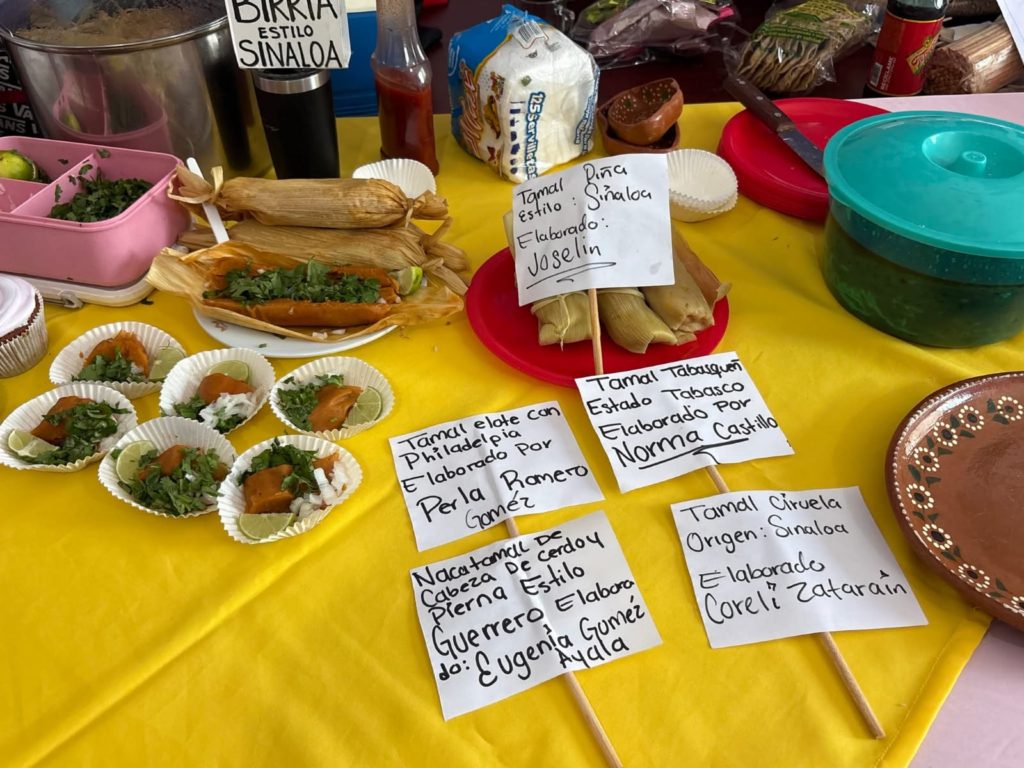 BIRRIA
ESTILO
SINALOA
125 servilletas
Tamal Piña
Estilo: Sinaloa
Elaborado:
Joselin
Tamal Tabasqueñ
Estado Tabasco
Elaborado Por
Norma Castillo
Tamal elote con
Philadelpia
Elaborado Por
Perla Romero
Goméz
Tamal Ciruela
Origen: Sinaloa
Elaborado
Coreli Zatarain
Nacatamal De
Cabeza De Cerdo y
Pierna Estilo
Guerrero Elabora
do: Eugenia Goméz
Ayala